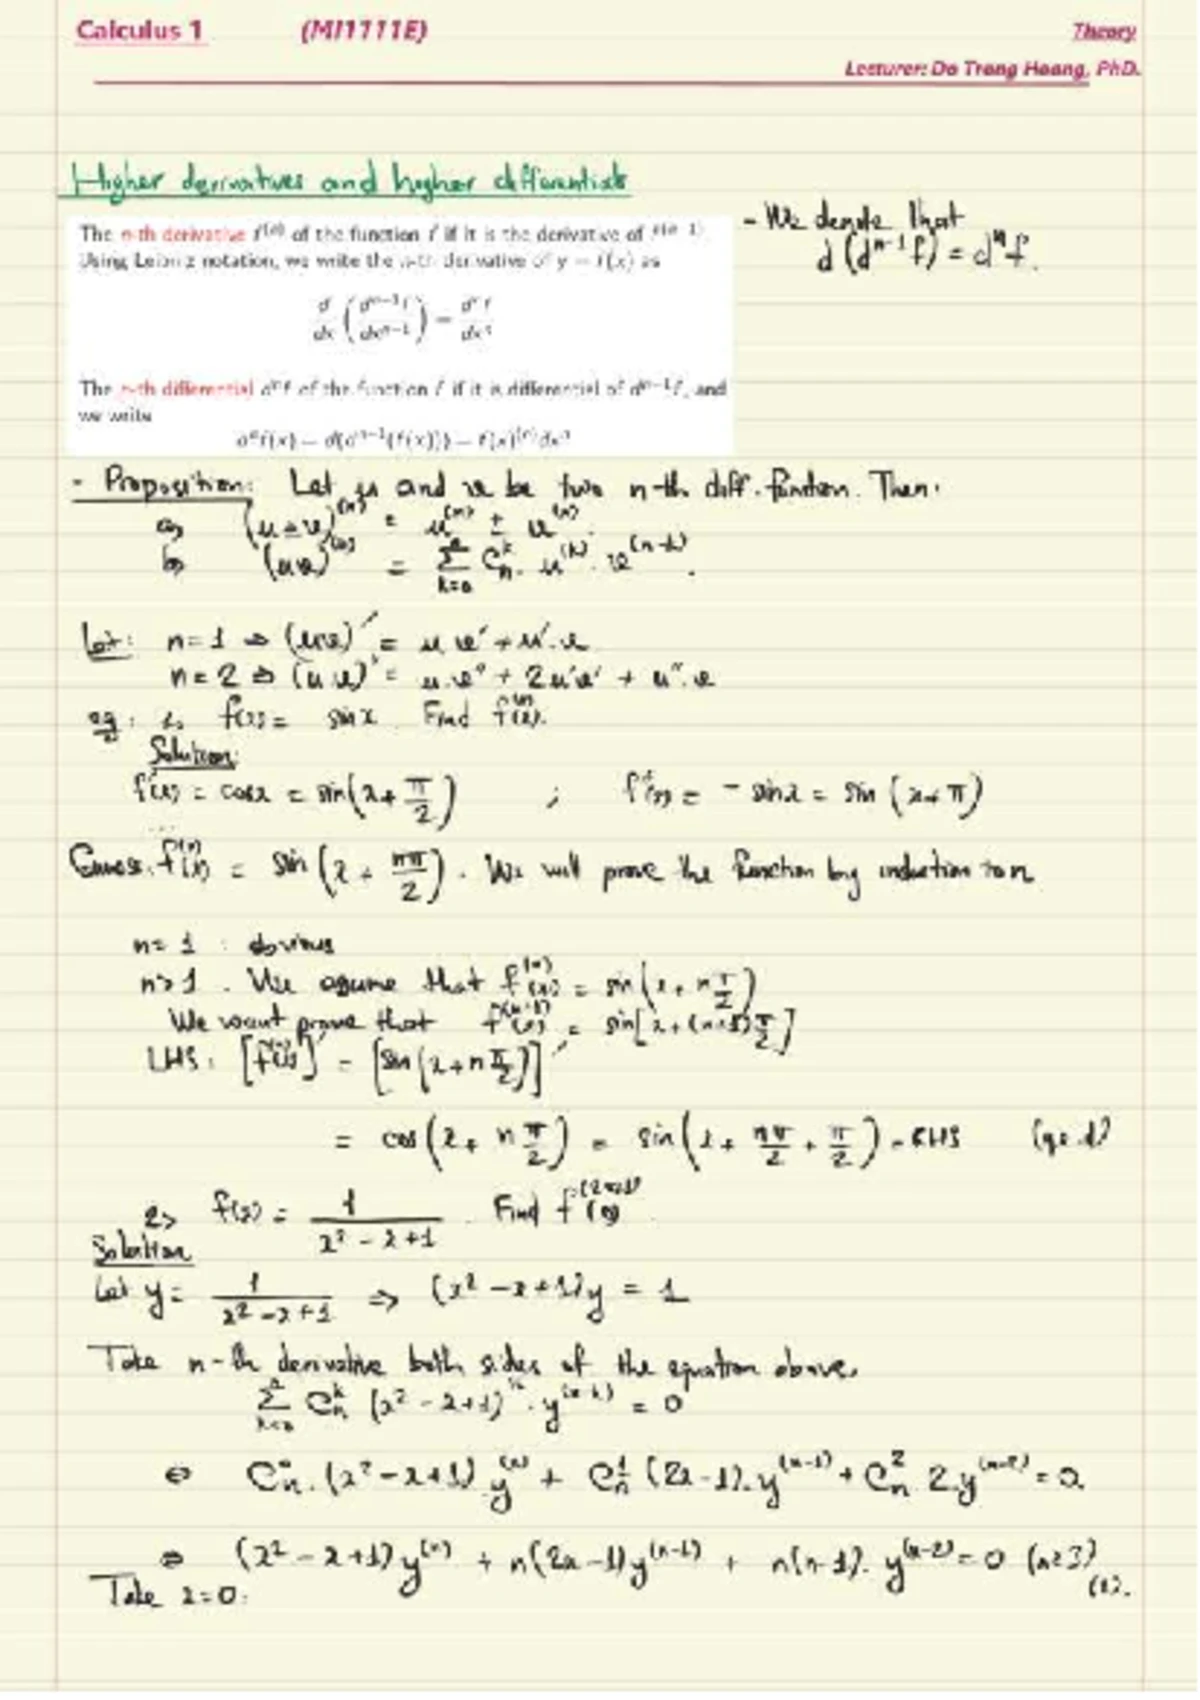 Calculus 1 (MI1111E) Theory
Lecturer: Do Trong Hoang, PhD.
Higher derivatives and higher differentials
The n-th derivative f^(n) of the function f if it is the derivative of f^(n-1).
Using Leibniz notation, we write the n-th derivative of y = f(x) as
d/dx (d^(n-1)f/dx^(n-1)) = d^n f/dx^n
- We denote that
d(d^(n-1)f) = d^n f.
The n-th differential d^n f of the function f if it is differential of d^(n-1)f, and
we write
d^n f(x) = d(d^(n-1)(f(x))) = f(x)^(n) dx^n
- Proposition: Let u and v be two n-th diff. function. Then:
a> (u ± v)^(n) = u^(n) ± v^(n).
b> (uv)^(n) = Σ_{k=0}^{n} C_n^k . u^(k) . v^(n-k).
n = 1 ⇒ (uv)' = u v' + u'.v
n = 2 ⇒ (u.v)'' = u.v'' + 2u'v' + u''.v
eg: 1> f(x) = sin x. Find f^(n)(x).
Solution:
f'(x) = cos x = sin(x + π/2) ; f''(x) = - sin x = sin (x + π)
Guess: f^(n)(x) = sin (x + nπ/2). We will prove the function by induction to n
n = 1 : obvious
n > 1. We assume that f^(n)(x) = sin(x + n π/2)
We want prove that f^(n+1)(x) = sin[x + (n+1) π/2]
LHS: [f^(n)(x)]' = [sin (x + n π/2)]'
= cos (x + n π/2) = sin (x + nπ/2 + π/2) = RHS (q.e.d)
2> f(x) = 1/(x² - x + 1). Find f^(2021)(0).
Solution
Let y = 1/(x² - x + 1) ⇒ (x² - x + 1)y = 1
Take n-th derivative both sides of the equation above,
Σ_{k=0}^{n} C_n^k (x² - x + 1)^(k) . y^(n-k) = 0
⇔ C_n^0 . (x² - x + 1) y^(n) + C_n^1 (2x - 1). y^(n-1) + C_n^2 2.y^(n-2) = 0
⇔ (x² - x + 1) y^(n) + n(2x - 1) y^(n-1) + n(n-1). y^(n-2) = 0 (n ≥ 3)
(1).
Take x = 0: